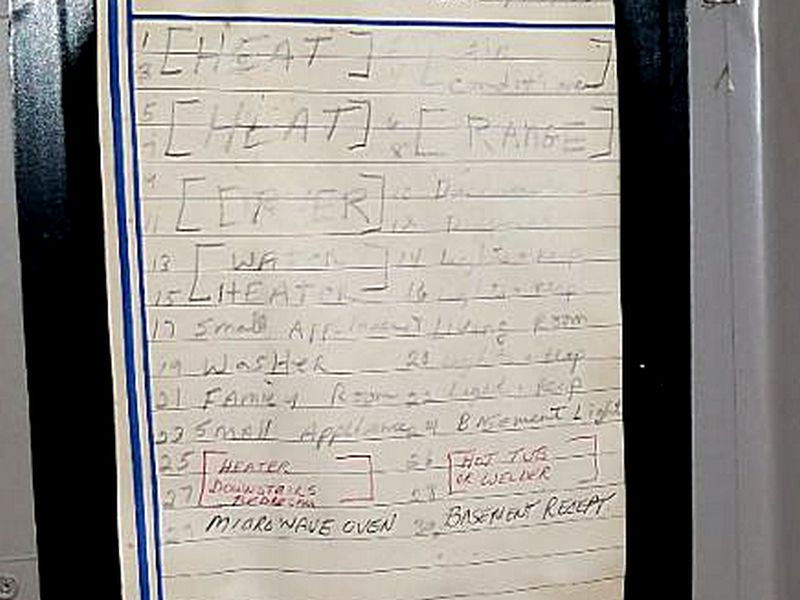 1 [HEAT] [Air
3 conditioner]
5 [HEAT] 6 [RANGE]
7 8
9 [DRYER] 10
11 12
13 [WATER 14 Light + Recep
15 HEATER] 16 Light + Recep
17 Small Appliance Living Room
19 WasHer 20 Light + Recep
21 FAMiLy Room 22 Light + Recep
23 Small Appliance 24 BASEMENT Light
25 [HEATER 26 [HOT TUB
27 DOWNSTAIRS 28 OR WELDER]
BEDROOM]
29 MICROWAVE OVEN 30 BASEMENT RECEPT